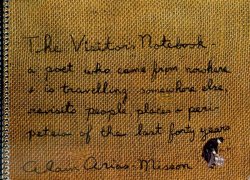 The Visitors Notebook -
a poet who came from nowhere
& is travelling somewhere else,
revisits people, places & peri-
peteia of the last forty years
Alain Arias-Misson